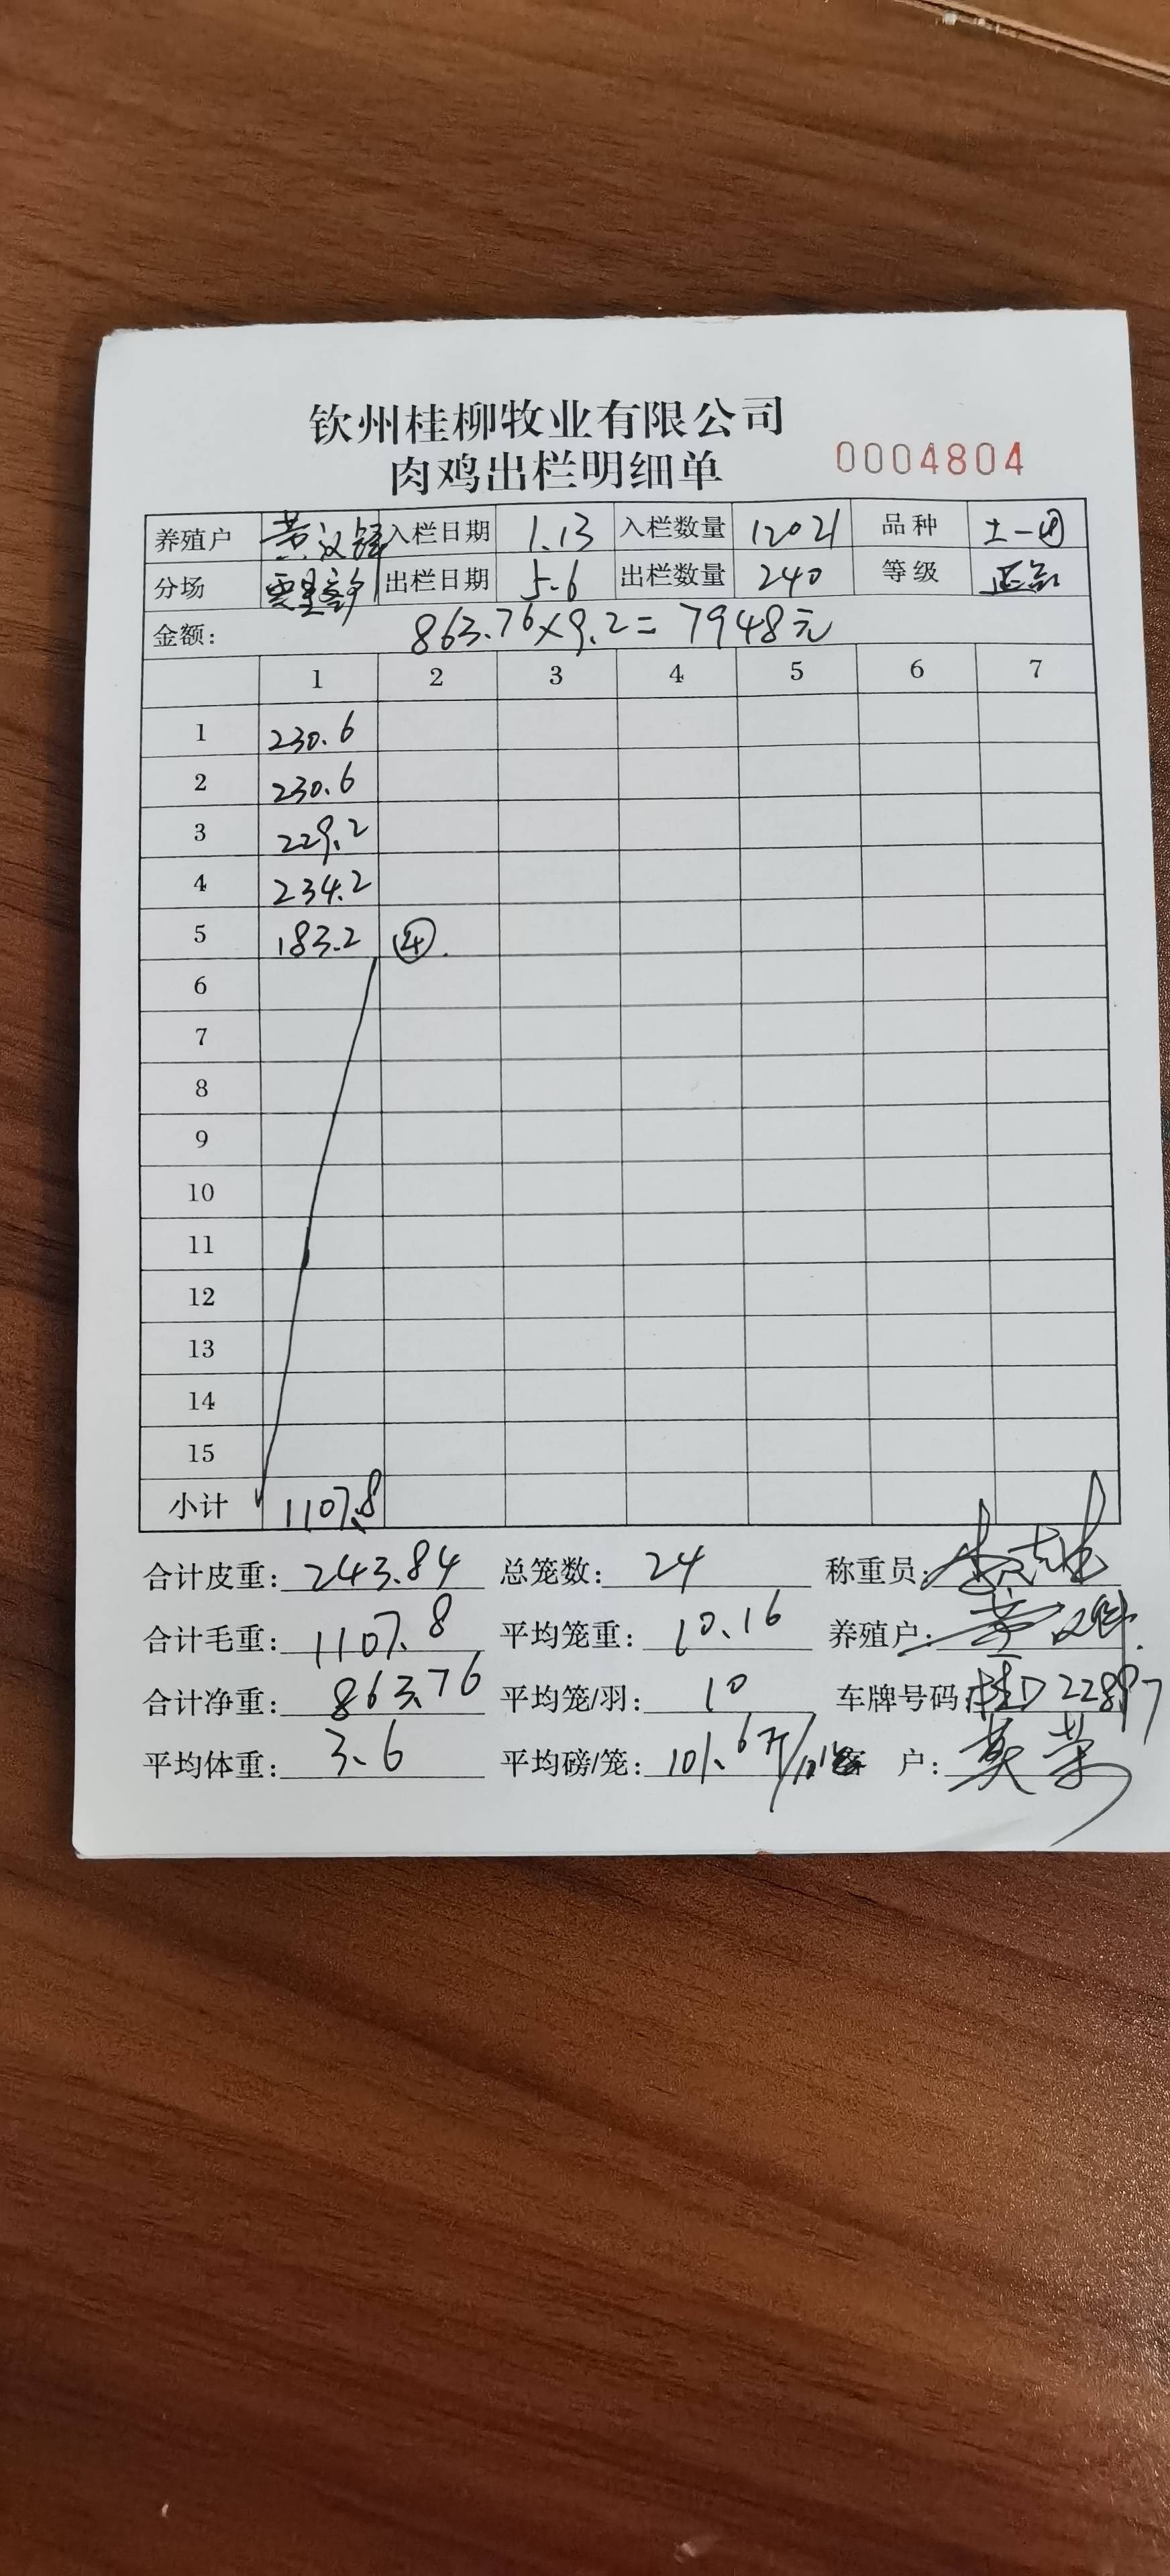 钦州桂柳牧业有限公司
肉鸡出栏明细单 0004804
养殖户 黄 入栏日期 1.13 入栏数量 12021 品种 土一
分场 出栏日期 5.6 出栏数量 240 等级
金额: 863.76×9.2=7948元
1 2 3 4 5 6 7
1 230.6
2 230.6
3 229.2
4 234.2
5 183.2 ④.
6
7
8
9
10
11
12
13
14
15
小计 1107.8
合计皮重: 243.84 总笼数: 24 称重员:
合计毛重: 1107.8 平均笼重: 10.16 养殖户: 黄
合计净重: 863.76 平均笼/羽: 10 车牌号码: 桂D
平均体重: 3.6 平均磅/笼: 101.6斤/ 户: